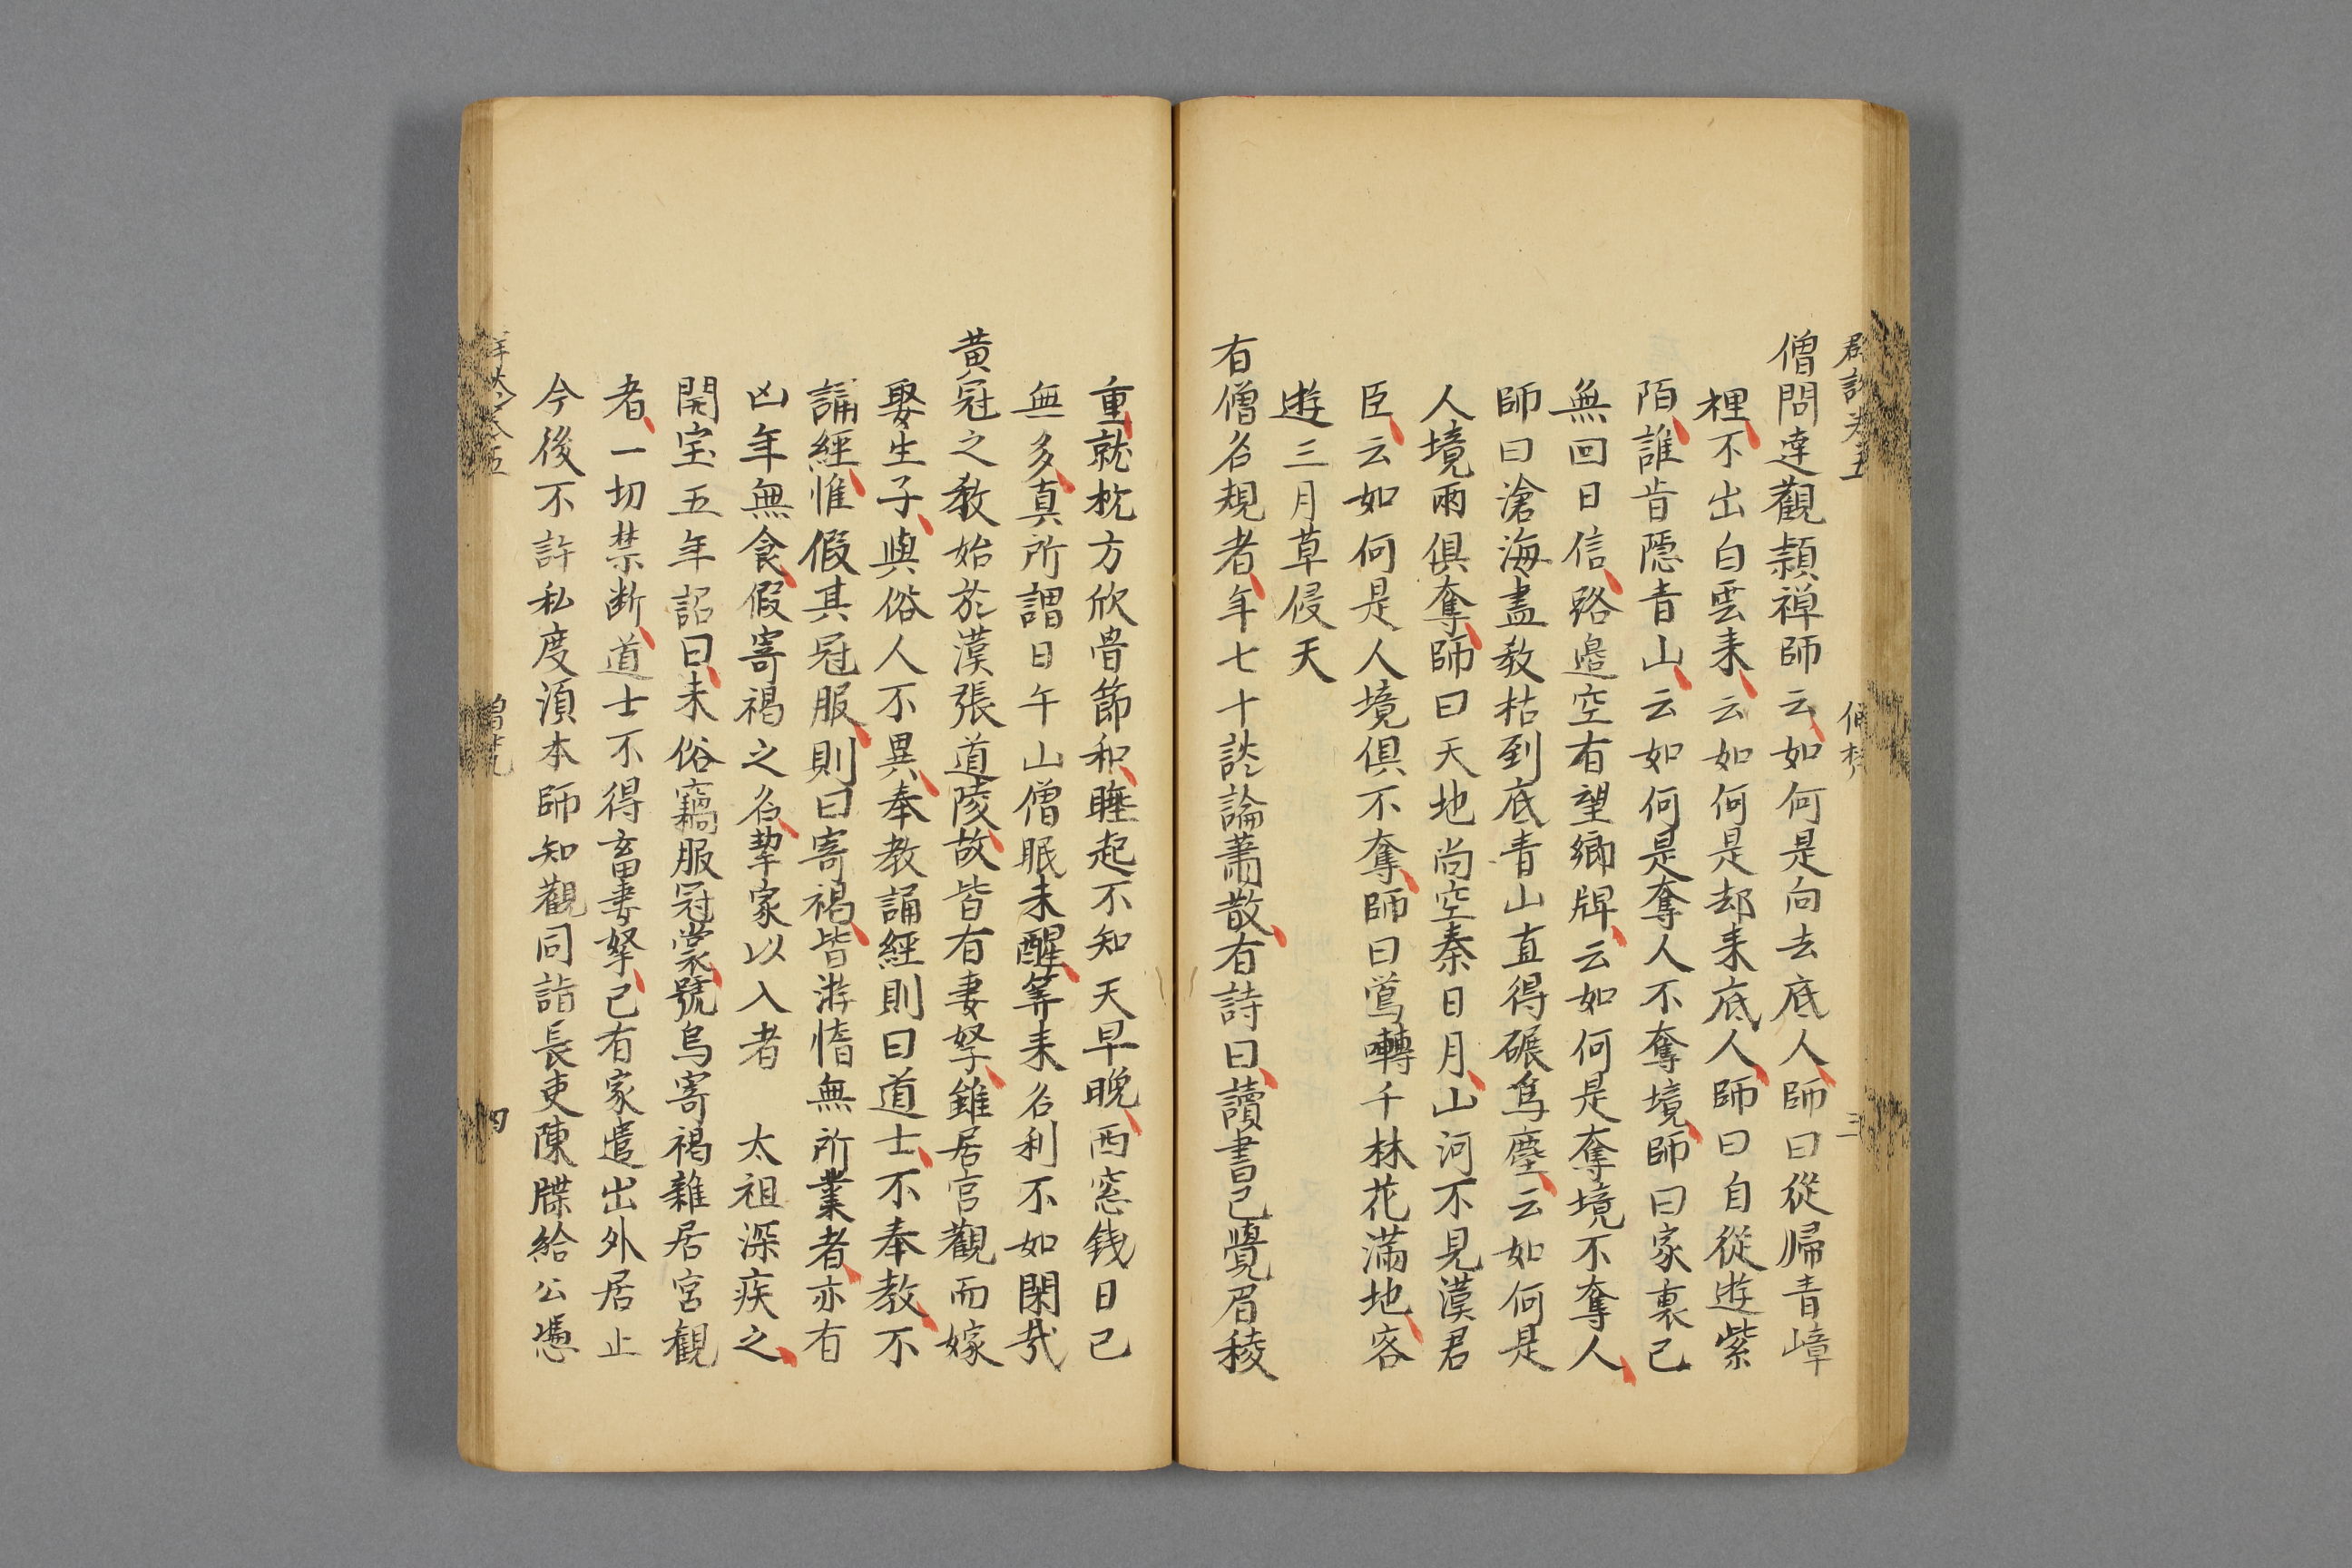 僧問達觀頴禅師云如何是向去底人師曰從帰青嶂
裡不出白雲来云如何是却来底人師曰自從遊紫
陌誰肯隠青山云如何是奪人不奪境師曰家裏已
無回日信路邉空有望鄉牌云如何是奪境不奪人
師曰滄海盡教枯到底青山直得碾爲塵云如何是
人境兩俱奪師曰天地尚空秦日月山河不見漢君
臣云如何是人境俱不奪師曰鶯囀千林花滿地客
遊三月草侵天
有僧名規者年七十談論蕭散有詩曰讀書已覺眉稜
重就枕方欣骨節和睡起不知天早晚西窓銭日已
無多真所謂日午山僧眠未醒筭来名利不如閑㢤
黄冠之教始於漢張道陵故皆有妻孥雖居官觀而嫁
娶生子與俗人不異奉教誦經則曰道士不奉教不
誦經惟假其冠服則曰寄褐皆游惰無所業者亦有
凶年無食假寄褐之名挈家以入者　太祖深疾之
開宝五年詔曰末俗竊服冠裳號爲寄褐雜居宮觀
者一切禁断道士不得畜妻孥已有家遣出外居止
今後不許私度湏本師知觀同詣長吏陳牒給公憑